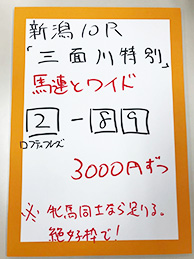 新潟10R
「三面川特別」
馬連とワイド
2-89
ロフティフレーズ
3000円ずつ
※牝馬同士なら足りる。
絶好枠で!